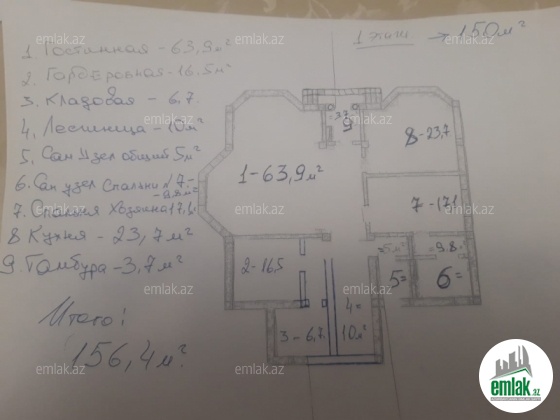 1 этаж → 150м²
1. Гостинная - 63,9м²
2. Гардеровная - 16.5м²
3. Кладовая - 6,7.
4, Лестница - 10м²
5. Сан Узел общий 5м²
6. Сан узел Спальни № 7 -
- 9.8м²
7. Спальня Хозяина 17,1
8 Кухня - 23,7 м²
9. Тамбура - 3,7м²
Итого:
156,4м².
3,7
9
8-23,7
1-63,9м²
7-(17.1
2-16,5
5м²
5=
9.8.
6=
3-6,7.
4=
10м²
emlak.az
emlak.az
emlak.az
emlak.az
emlak.az
emlak.az
emlak.az
emlak.az
emlak.az
emlak.az
emlak.az
emlak.az
emlak.az